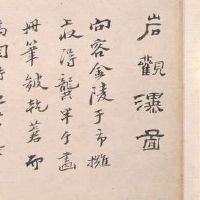 岩觀瀑圖
向客金陵于市攤
上收得龔半千畫
冊筆皴乾蒼而